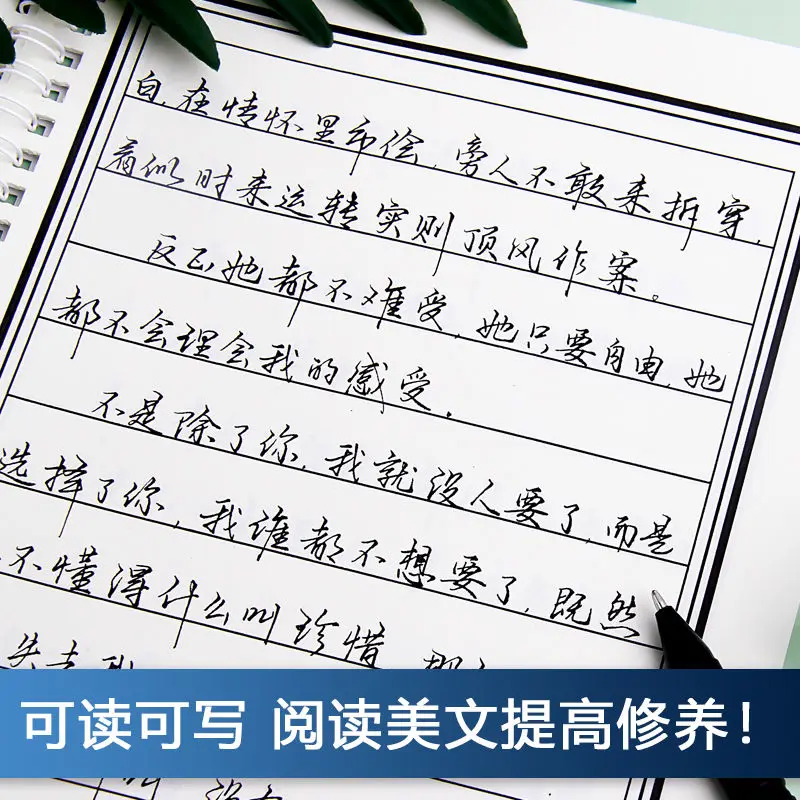 自在情怀里币绘，旁人不敢来拆穿，
看似时来运转实则顶风作案。
反正她都不难受，她只要自由，她
都不会理会我的感受。
不是除了你，我就没人要了，而是
选择了你，我谁都不想要了，既然
不懂得什么叫珍惜
失去我
可读可写 阅读美文提高修养！